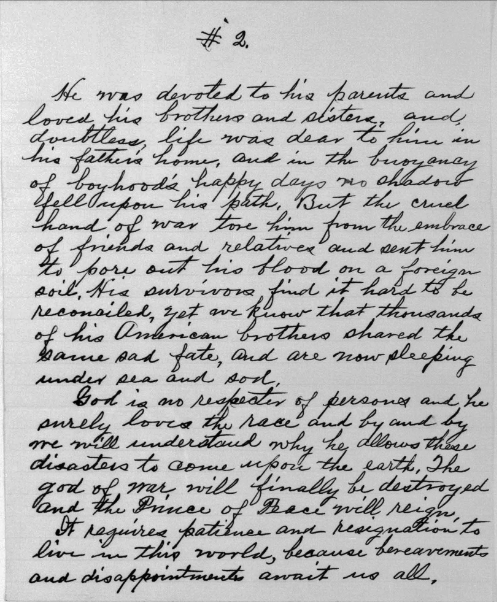 # 2.
He was devoted to his parents and
loved his brothers and sisters, and,
doubtless, life was dear to him in
his father's home, and in the buoyancy
of boyhood's happy days no shadow
fell upon his path. But the cruel
hand of war tore him from the embrace
of friends and relatives and sent him
to pore out his blood on a foreign
soil. His survivors find it hard to be
reconciled, yet we know that thousands
of his American brothers shared the
same sad fate, and are now sleeping
under sea and sod.
God is no respecter of persons and he
surely loves the race and by and by
we will understand why he allows these
disasters to come upon the earth. The
god of war will finally be destroyed
and the Prince of Peace will reign.
It requires patience and resignation to
live in this world, because bereavements
and disappointments await us all.